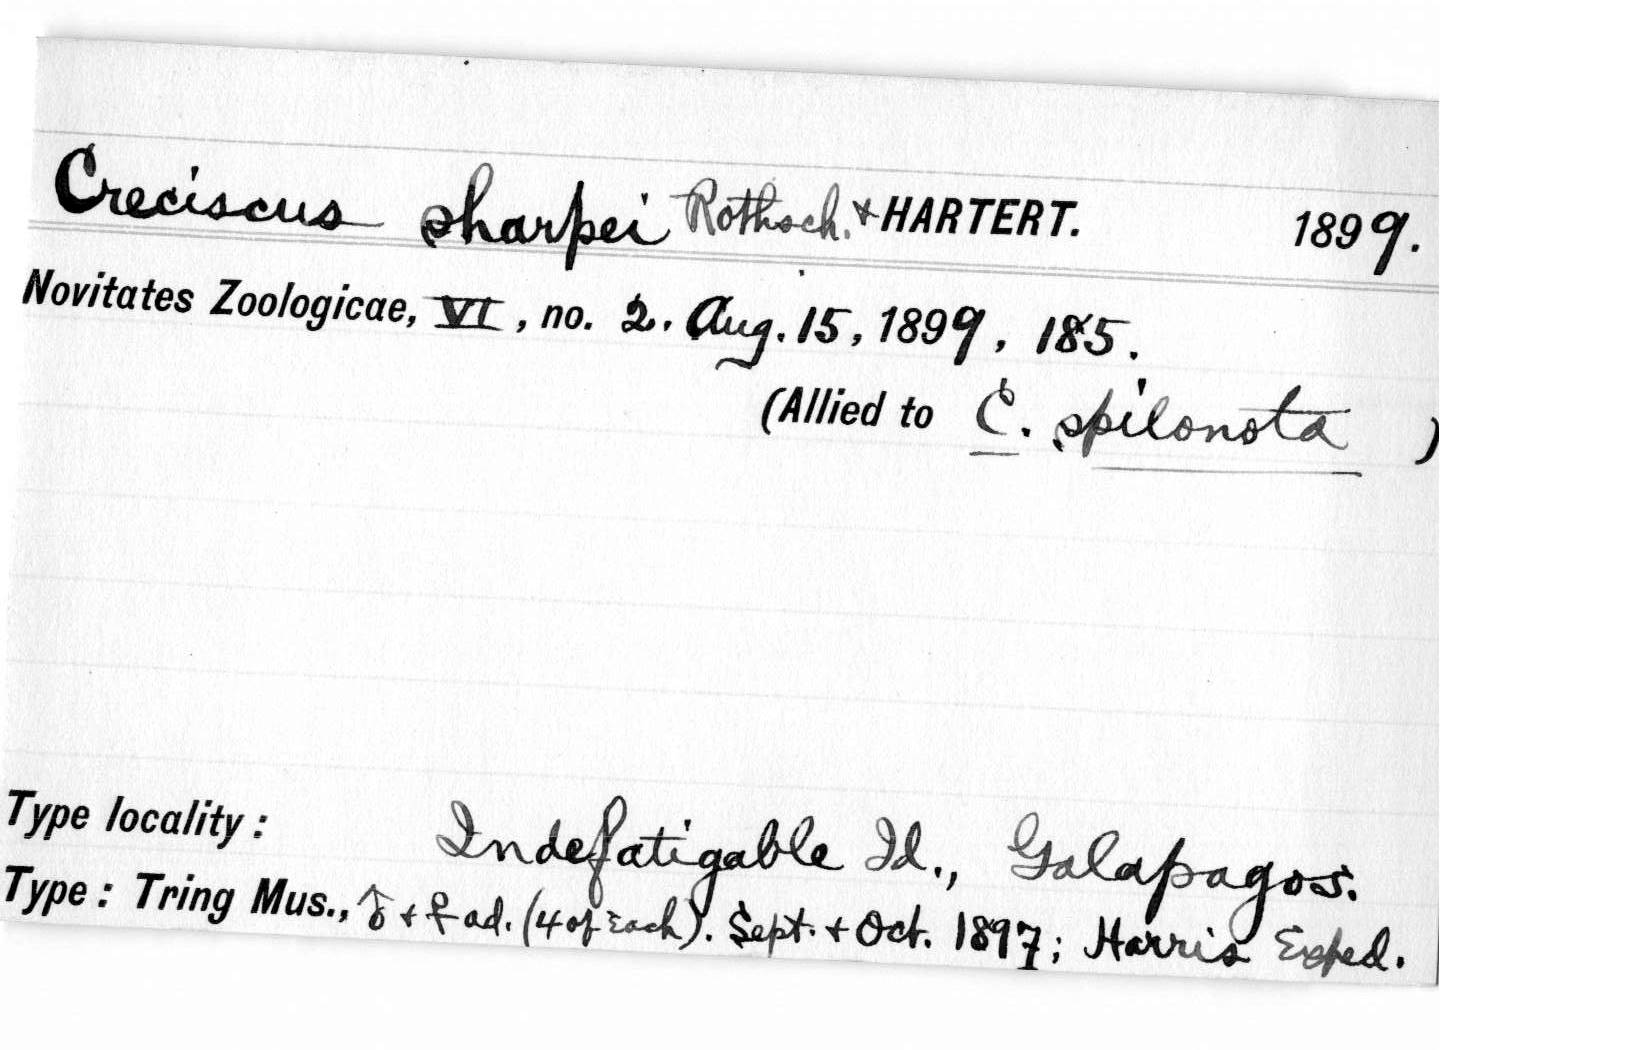 Creciscus sharpei Rothsch. & HARTERT. 1899.
Novitates Zoologicae, VI, no. 2. Aug. 15, 1899, 185.
(Allied to C. spilonota )
Type locality: Indefatigable Id., Galapagos.
Type: Tring Mus., ♂ + ♀ ad. (4 of Each). Sept. + Oct. 1897; Harris Exped.